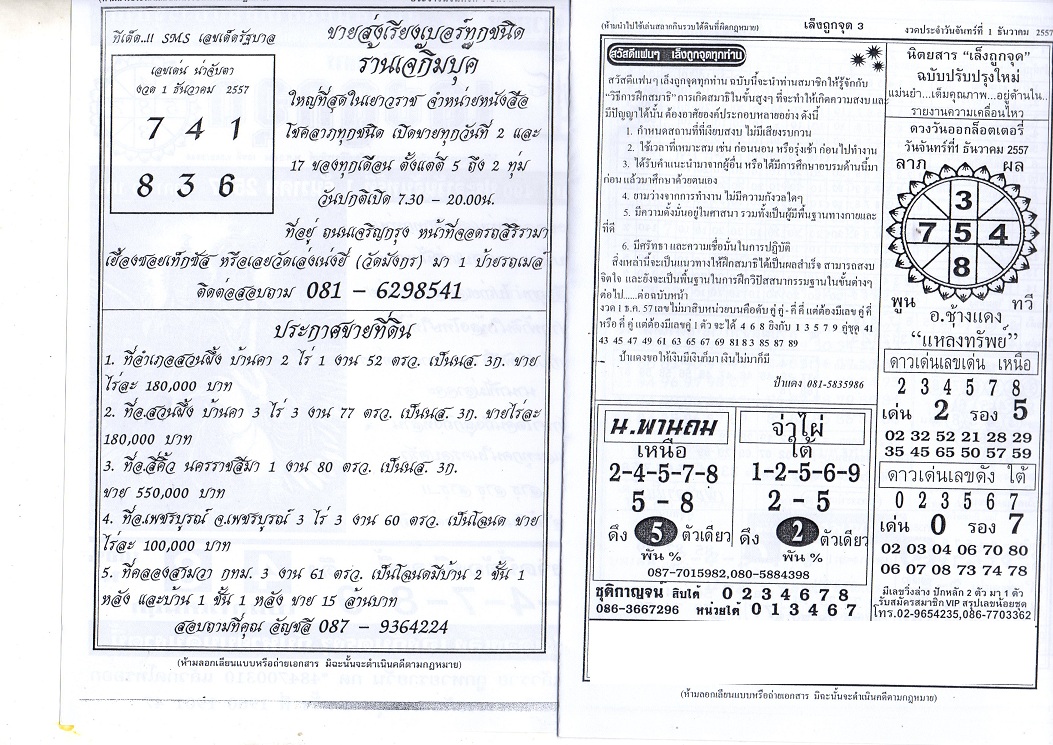 ทีเด็ด..!! SMS เลขเด็ดรัฐบาล
เลขเด่น น่าจับตา
งวด 1 ธันวาคม 2557
7 4 1
8 3 6
ขายส่งเรียงเบอร์ทุกชนิด
ร้านเจ๊กิมบุ๊ค
ใหญ่ที่สุดในเยาวราช จำหน่ายหนังสือ
โชคลาภทุกชนิด เปิดขายทุกวันที่ 2 และ
17 ของทุกเดือน ตั้งแต่ตี 5 ถึง 2 ทุ่ม
วันปกติเปิด 7.30 – 20.00น.
ที่อยู่ ถนนเจริญกรุง หน้าที่จอดรถสิริรามา
เยื้องซอยเท็กซัส หรือเลยวัดเล่งเน่ยยี่ (วัดมังกร) มา 1 ป้ายรถเมล์
ติดต่อสอบถาม 081 – 6298541
ประกาศขายที่ดิน
1. ที่อำเภอสวนผึ้ง บ้านคา 2 ไร่ 1 งาน 52 ตรว. เป็นนส. 3ก. ขาย
ไร่ละ 180,000 บาท
2. ที่อ.สวนผึ้ง บ้านคา 3 ไร่ 3 งาน 77 ตรว. เป็นนส. 3ก. ขายไร่ละ
180,000 บาท
3. ที่อ.สีคิ้ว นครราชสีมา 1 งาน 80 ตรว. เป็นนส. 3ก.
ขาย 550,000 บาท
4. ที่อ.เพชรบูรณ์ จ.เพชรบูรณ์ 3 ไร่ 3 งาน 60 ตรว. เป็นโฉนด ขาย
ไร่ละ 100,000 บาท
5. ที่คลองสามวา กทม. 3 งาน 61 ตรว. เป็นโฉนดมีบ้าน 2 ชั้น 1
หลัง และบ้าน 1 ชั้น 1 หลัง ขาย 15 ล้านบาท
สอบถามที่คุณ อัญชลี 087 – 9364224
(ห้ามลอกเลียนแบบหรือถ่ายเอกสาร มิฉะนั้นจะดำเนินคดีตามกฎหมาย)
(ห้ามนำไปใช้เล่นสลากกินรวบใต้ดินที่ผิดกฎหมาย)
เล็งถูกจุด 3
งวดประจำวันจันทร์ที่ 1 ธันวาคม 2557
สวัสดีแฟนๆ เล็งถูกจุดทุกท่าน
สวัสดีแฟนๆ เล็งถูกจุดทุกท่าน ฉบับนี้จะนำท่านสมาชิกให้รู้จักกับ
"วิธีการฝึกสมาธิ" การเกิดสมาธิในขั้นสูงๆ ที่จะทำให้เกิดความสงบ และ
มีปัญญาได้นั้น ต้องอาศัยองค์ประกอบหลายอย่าง ดังนี้
1. กำหนดสถานที่ที่เงียบสงบ ไม่มีเสียงรบกวน
2. ใช้เวลาที่เหมาะสม เช่น ก่อนนอน หรือรุ่งเช้า ก่อนไปทำงาน
3. ได้รับคำแนะนำมาจากผู้อื่น หรือได้มีการศึกษาอบรมด้านนี้มา
ก่อน แล้วมาศึกษาด้วยตนเอง
4. ยามว่างจากการทำงาน ไม่มีความกังวลใดๆ
5. มีความตั้งมั่นอยู่ในศาสนา รวมทั้งเป็นผู้มีพื้นฐานทางกายและ
ที่ดี
6. มีศรัทธา และความเชื่อมั่นในการปฏิบัติ
สิ่งเหล่านี้จะเป็นแนวทางให้ฝึกสมาธิได้เป็นผลสำเร็จ สามารถสงบ
จิตใจ และยังจะเป็นพื้นฐานในการฝึกวิปัสสนากรรมฐานในขั้นต่างๆ
ต่อไป......ต่อฉบับหน้า
งวด 1 ธ.ค. 57 เลขไม่มาสิบหน่วยบนคือดับ คู่ คู่ - คี่ คี่ แต่ต้องมีเลข คู่ คี่
หรือ คี่ คู่ แต่ต้องมีเลขคู่ 1 ตัว จะได้ 4 6 8 ยิงกับ 1 3 5 7 9 คู่ชุด 41
43 45 47 49 61 63 65 67 69 81 8 3 85 87 89
ป้าแดงขอให้เงินมีเงินก็มา เงินไม่มาก็มี
ป้าแดง 081-5835986
น.พานถม
เหนือ
2-4-5-7-8
5 - 8
ดึง 5 ตัวเดียว
พัน %
จ่าไผ่
ใต้
1-2-5-6-9
2 - 5
ดึง 2 ตัวเดียว
พัน %
087-7015982,080-5884398
ชุติกาญจน์ สิบได้ 0 2 3 4 6 7 8
086-3667296 หน่วยได้ 0 1 3 4 6 7
นิตยสาร "เล็งถูกจุด"
ฉบับปรับปรุงใหม่
แม่นยำ...เต็มคุณภาพ...อยู่ด้านใน..
รายงานความเคลื่อนไหว
ดวงวันออกล็อตเตอรี่
วันจันทร์ที่1 ธันวาคม 2557
ลาภ ผล
3
7 5 4
8
พูน ทวี
อ.ช้างแดง
"แหล่งทรัพย์"
ดาวเด่นเลขเด่น เหนือ
2 3 4 5 7 8
เด่น 2 รอง 5
02 32 52 21 28 29
35 45 65 50 57 59
ดาวเด่นเลขดัง ใต้
0 2 3 5 6 7
เด่น 0 รอง 7
02 03 04 06 70 80
06 07 08 73 74 78
มีเลขวิ่งล่าง ปักหลัก 2 ตัว มา 1 ตัว
รับสมัครสมาชิก VIP สรุปเลขน้อยชุด
โทร.02-9654235,086-7703362
(ห้ามลอกเลียนแบบหรือถ่ายเอกสาร มิฉะนั้นจะดำเนินคดีตามกฎหมาย)